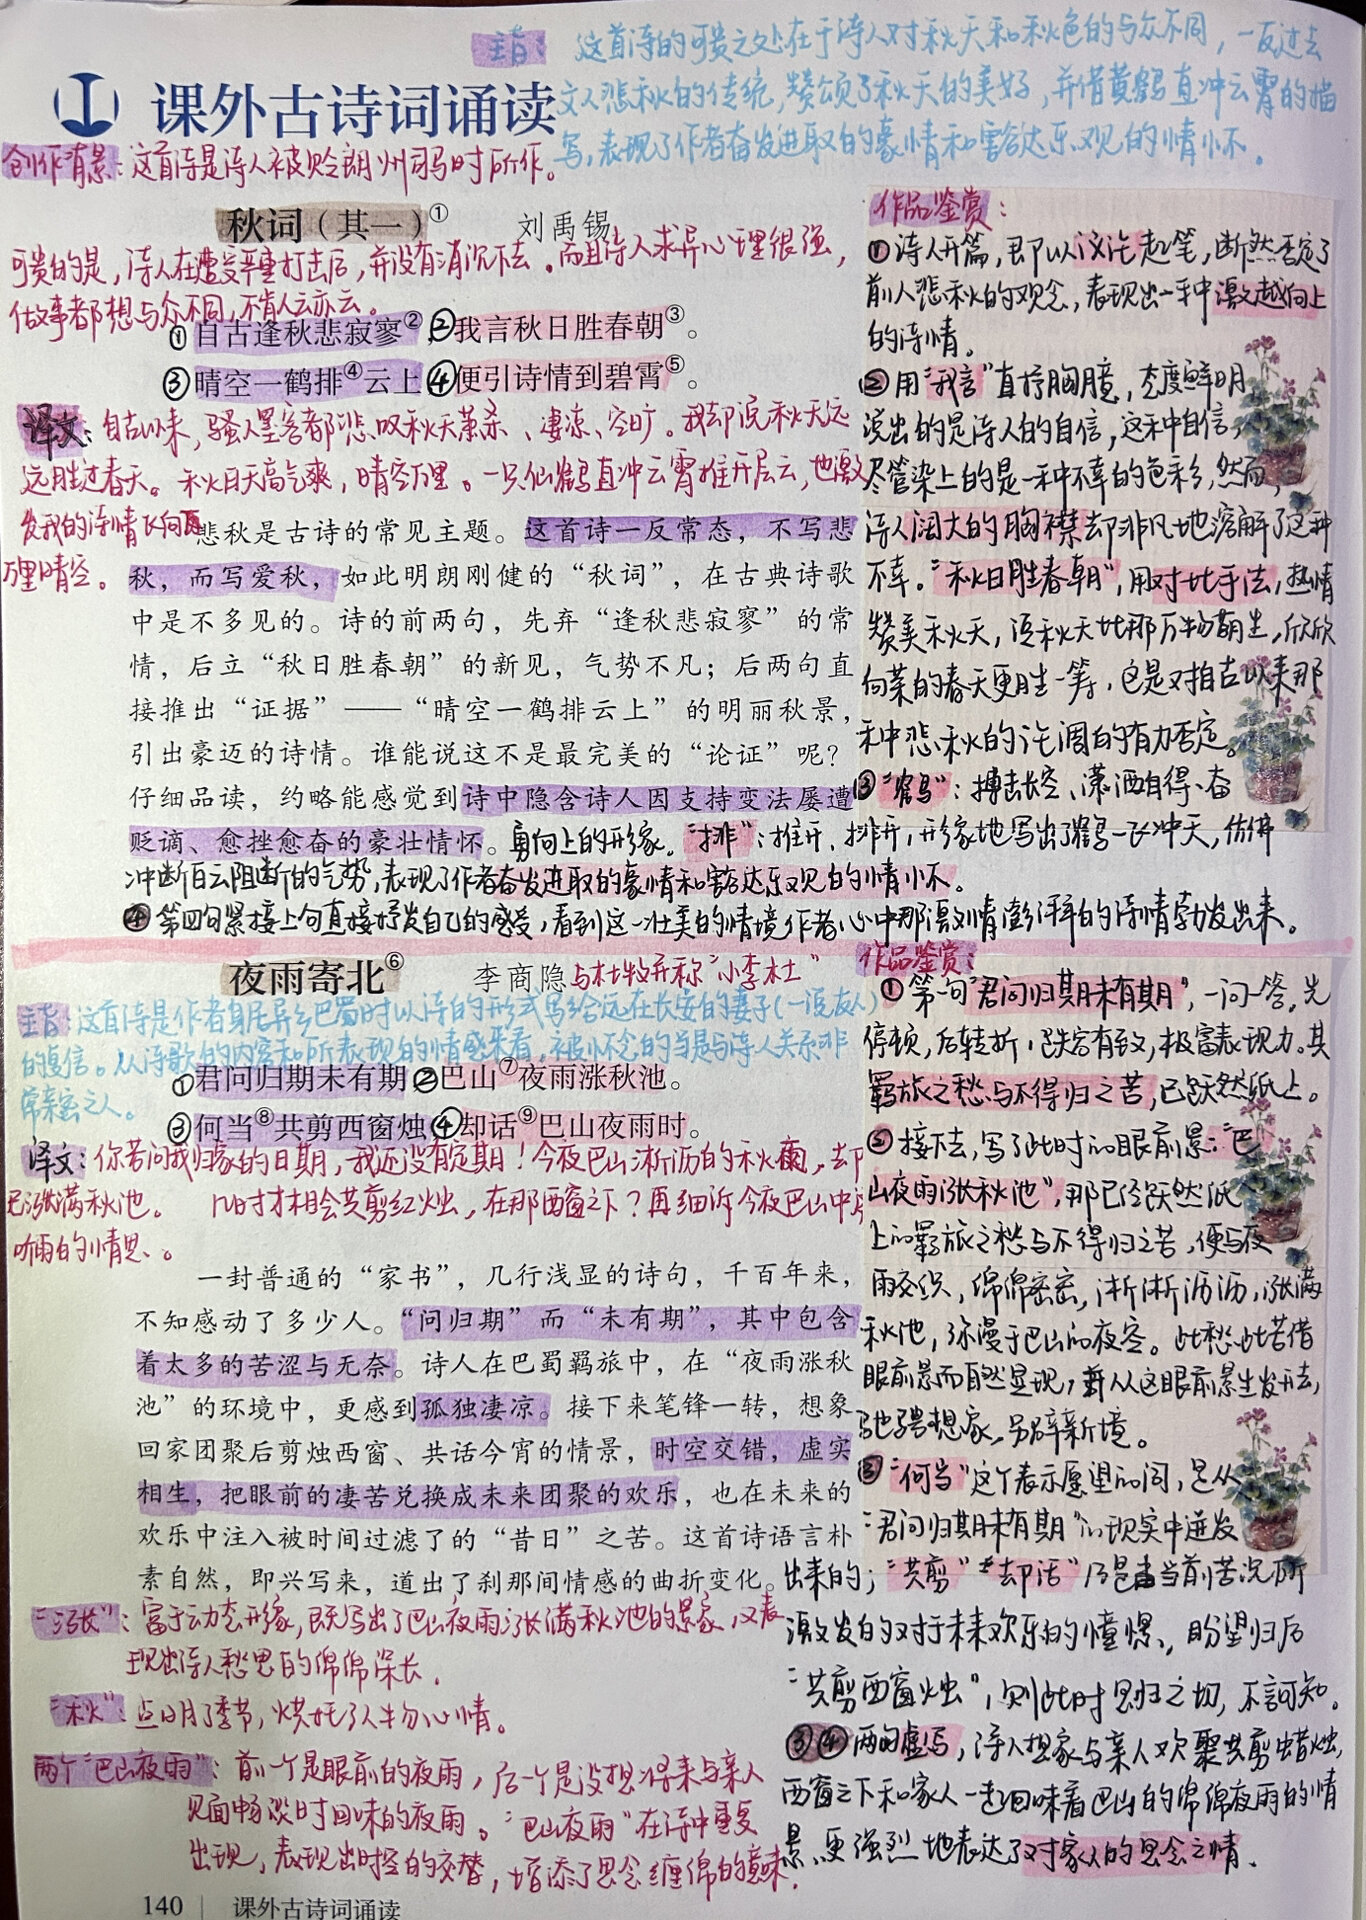 主旨：这首诗的可贵之处在于诗人对秋天和秋色的与众不同，一反过去
文人悲秋的传统，赞颂了秋天的美好，并借黄鹤直冲云霄的描
写，表现了作者奋发进取的豪情和豁达乐观的情怀。
课外古诗词诵读
创作背景：这首诗是诗人被贬朗州司马时所作。
秋词（其一）① 刘禹锡
可贵的是，诗人在遭受严重打击后，并没有消沉下去。而且诗人求异心理很强，
做事都想与众不同，不肯人云亦云。
①自古逢秋悲寂寥②②我言秋日胜春朝③。
③晴空一鹤排④云上④便引诗情到碧霄⑤。
译文：自古以来，骚人墨客都悲叹秋天萧杀、凄凉、空旷。我却说秋天远
远胜过春天。秋日天高气爽，晴空万里。一只仙鹤直冲云霄推开层云，也激
发我的诗情飞向
万里晴空。
悲秋是古诗的常见主题。这首诗一反常态，不写悲
秋，而写爱秋，如此明朗刚健的“秋词”，在古典诗歌
中是不多见的。诗的前两句，先弃“逢秋悲寂寥”的常
情，后立“秋日胜春朝”的新见，气势不凡；后两句直
接推出“证据”——“晴空一鹤排云上”的明丽秋景，
引出豪迈的诗情。谁能说这不是最完美的“论证”呢？
仔细品读，约略能感觉到诗中隐含诗人因支持变法屡遭
贬谪、愈挫愈奋的豪壮情怀。
作品鉴赏：
①诗人开篇，即以议论起笔，断然否定了
前人悲秋的观念，表现出一种激越向上
的诗情。
②用“我言”直抒胸臆，态度鲜明
说出的是诗人的自信，这种自信，
尽管染上的是一种不幸的色彩，然而，
诗人阔大的胸襟却非凡地溶解了这种
不幸。“秋日胜春朝”，用对比手法，热情
赞美秋天，说秋天比那万物萌生，欣欣
向荣的春天更胜一筹，这是对自古以来那
种悲秋的论调的有力否定。
③“鹤”：搏击长空、潇洒自得、奋
勇向上的形象。“排”：推开、排开，形象地写出了鹤一飞冲天，仿佛
冲断白云阻断的气势，表现了作者奋发进取的豪情和豁达乐观的情怀。
④第四句紧接上句直接抒发自己的感受，看到这一壮美的情境作者心中那激情澎湃的诗情勃发出来。
夜雨寄北⑥ 李商隐 与杜牧并称“小李杜”
主旨：这首诗是作者身居异乡巴蜀时以诗的形式写给远在长安的妻子（一说友人）
的复信。从诗歌的内容和所表现的情感来看，被怀念的当是与诗人关系非
常亲密之人。
①君问归期未有期②巴山⑦夜雨涨秋池。
③何当⑧共剪西窗烛④却话⑨巴山夜雨时。
译文：你若问我归家的日期，我还没有定期！今夜巴山淅沥的秋雨，却
已涨满秋池。 几时才相会共剪红烛，在那西窗之下？再细诉今夜巴山中
听雨的情思。
一封普通的“家书”，几行浅显的诗句，千百年来，
不知感动了多少人。“问归期”而“未有期”，其中包含
着太多的苦涩与无奈。诗人在巴蜀羁旅中，在“夜雨涨秋
池”的环境中，更感到孤独凄凉。接下来笔锋一转，想象
回家团聚后剪烛西窗、共话今宵的情景，时空交错，虚实
相生，把眼前的凄苦兑换成未来团聚的欢乐，也在未来的
欢乐中注入被时间过滤了的“昔日”之苦。这首诗语言朴
素自然，即兴写来，道出了刹那间情感的曲折变化。
“涨”：富于动态形象，既写出了巴山夜雨涨满秋池的景象，又表
现出诗人愁思的绵绵深长。
“秋”：点明了季节，烘托了人物心情。
两个“巴山夜雨”：前一个是眼前的夜雨，后一个是设想将来与亲人
见面畅谈时回味的夜雨。“巴山夜雨”在诗中重复
出现，表现出时空的交替，增添了思念缠绵的意味。
作品鉴赏：
①第一句“君问归期未有期”，一问一答，先
停顿，后转折，跌宕有致，极富表现力。其
羁旅之愁与不得归之苦，已跃然纸上。
②接下去，写了此时的眼前景：“巴
山夜雨涨秋池”，那已经跃然纸
上的羁旅之愁与不得归之苦，便与夜
雨交织，绵绵密密，淅淅沥沥，涨满
秋池，弥漫于巴山的夜空。此愁此苦借
眼前景而自然显现，从这眼前景生发开去，
驰骋想象，另辟新境。
③“何当”这个表示愿望的词，是从
“君问归期未有期”的现实中迸发
出来的；“共剪”“却话”乃是由当前苦况所
激发的对于未来欢乐的憧憬，盼望归后
“共剪西窗烛”，则此时思归之切，不言可知。
③④两句虚写，诗人想象与亲人欢聚共剪蜡烛，
西窗之下和家人一起回味着巴山的绵绵夜雨的情
景，更强烈地表达了对家人的思念之情。
140 课外古诗词诵读